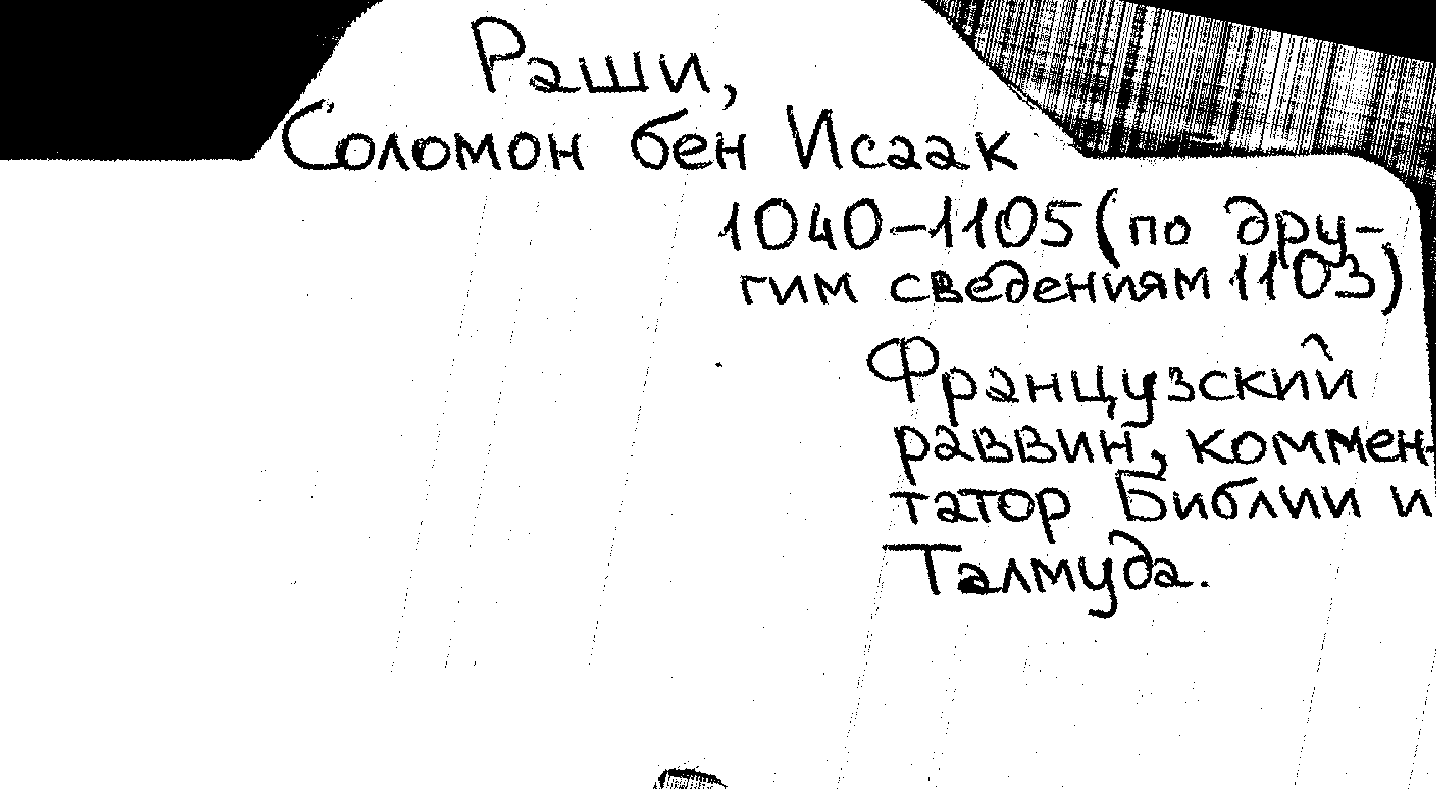 Раши,
Соломон бен Исаак
1040–1105 (по дру-
гим сведениям 1103)
Французский
раввин, коммен-
татор Библии и
Талмуда.